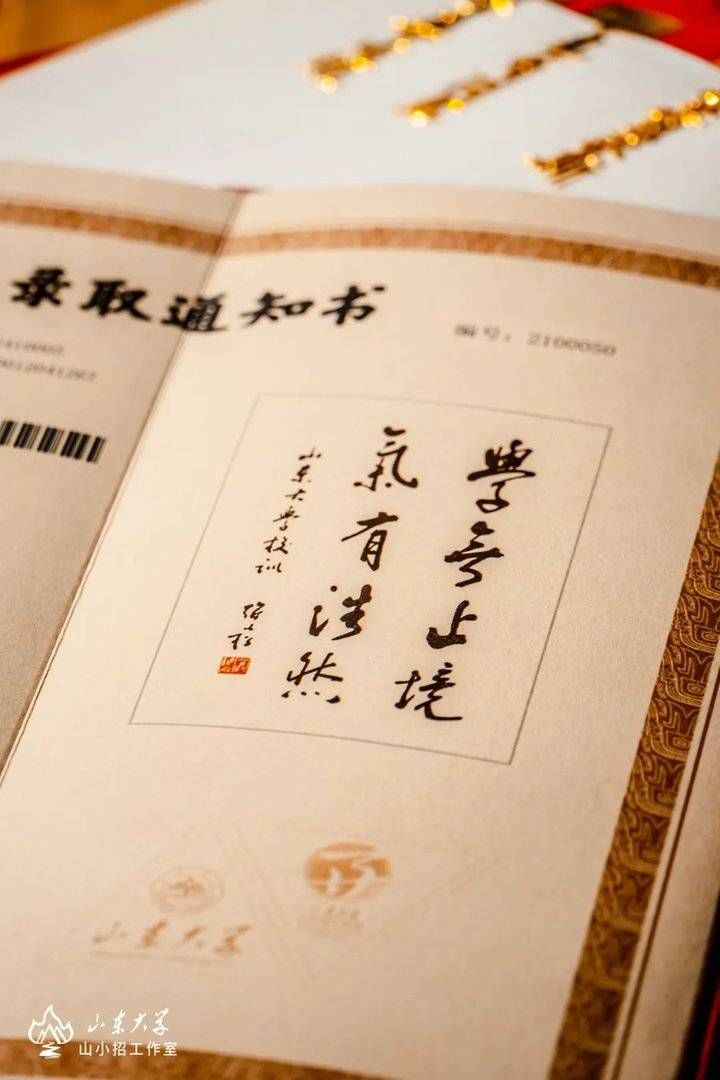 录取通知书
编号：2100050
學無止境
氣有浩然
山东大学校训
山东大学
山东大学
山小招工作室